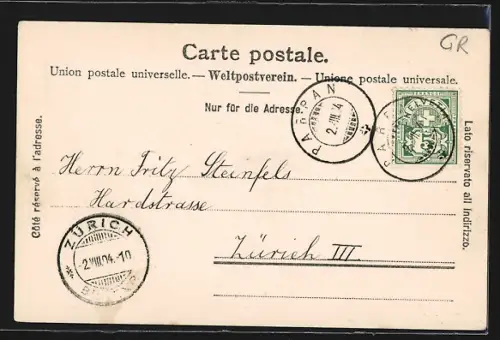 GR
Carte postale.
Union postale universelle. — Weltpostverein. — Unione postale universale.
Nur für die Adresse.
PARPAN
2.VIII.04
PARPAN
HELVETIA
Côté réservé à l'adresse.
Lato riservato all indirizzo.
Herrn Fritz Steinfels
Hardstrasse
Zürich III
ZÜRICH
2.VIII.04.-10